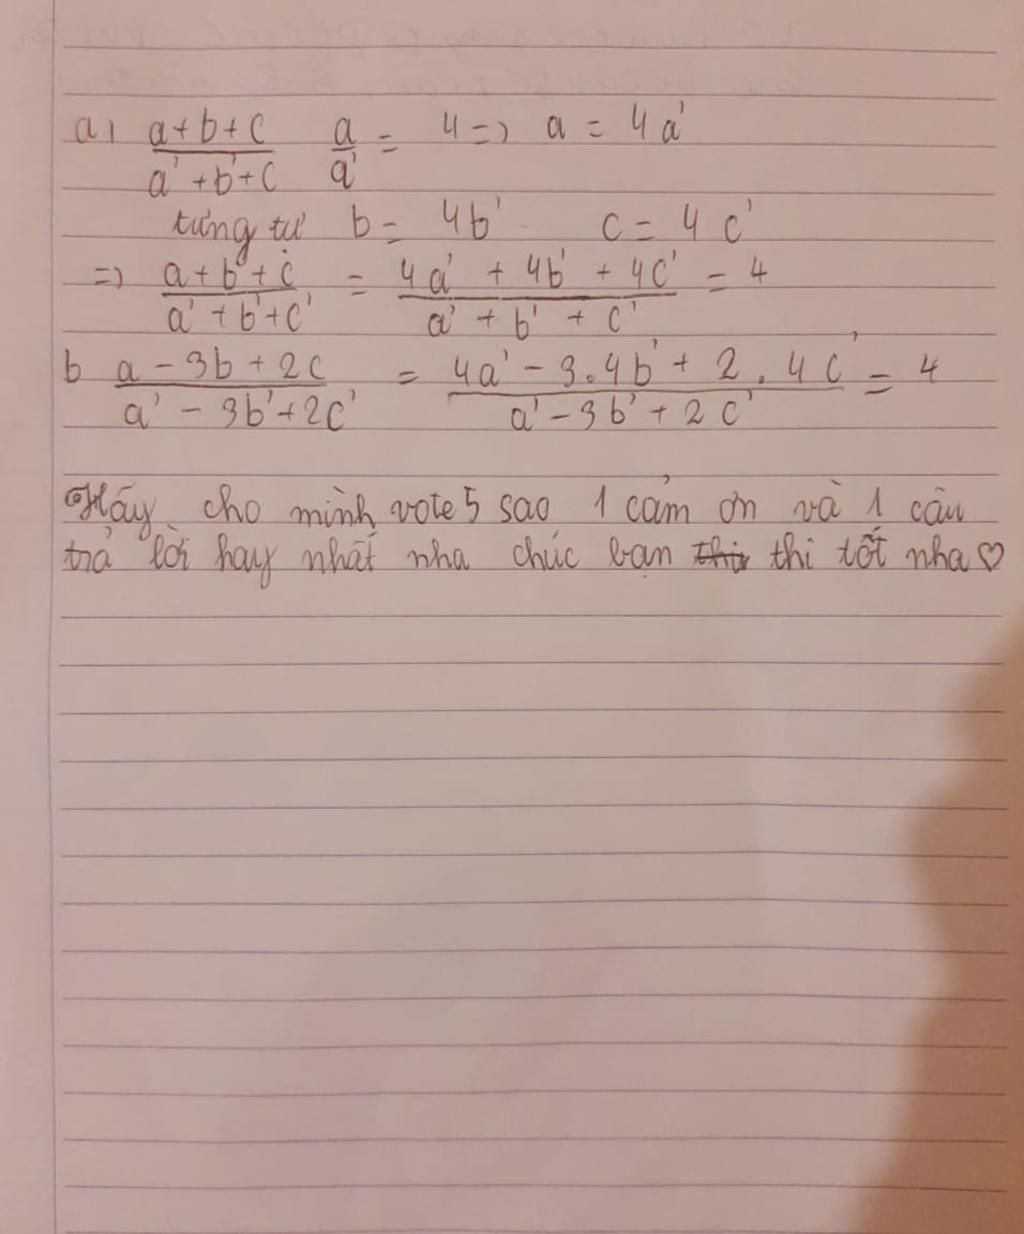 a, a+b+c / a'+b'+c a/a' = 4 => a = 4a'
tưng tự b = 4b' c = 4c'
=> a+b+c / a'+b'+c' = 4a' + 4b' + 4c' / a' + b' + c' = 4
b a - 3b + 2c / a' - 3b' + 2c' = 4a' - 3.4b' + 2.4c' / a' - 3b' + 2c' = 4
Hãy cho mình vote 5 sao 1 cảm ơn và 1 câu
trả lời hay nhất nha chúc bạn thi tốt nha♡